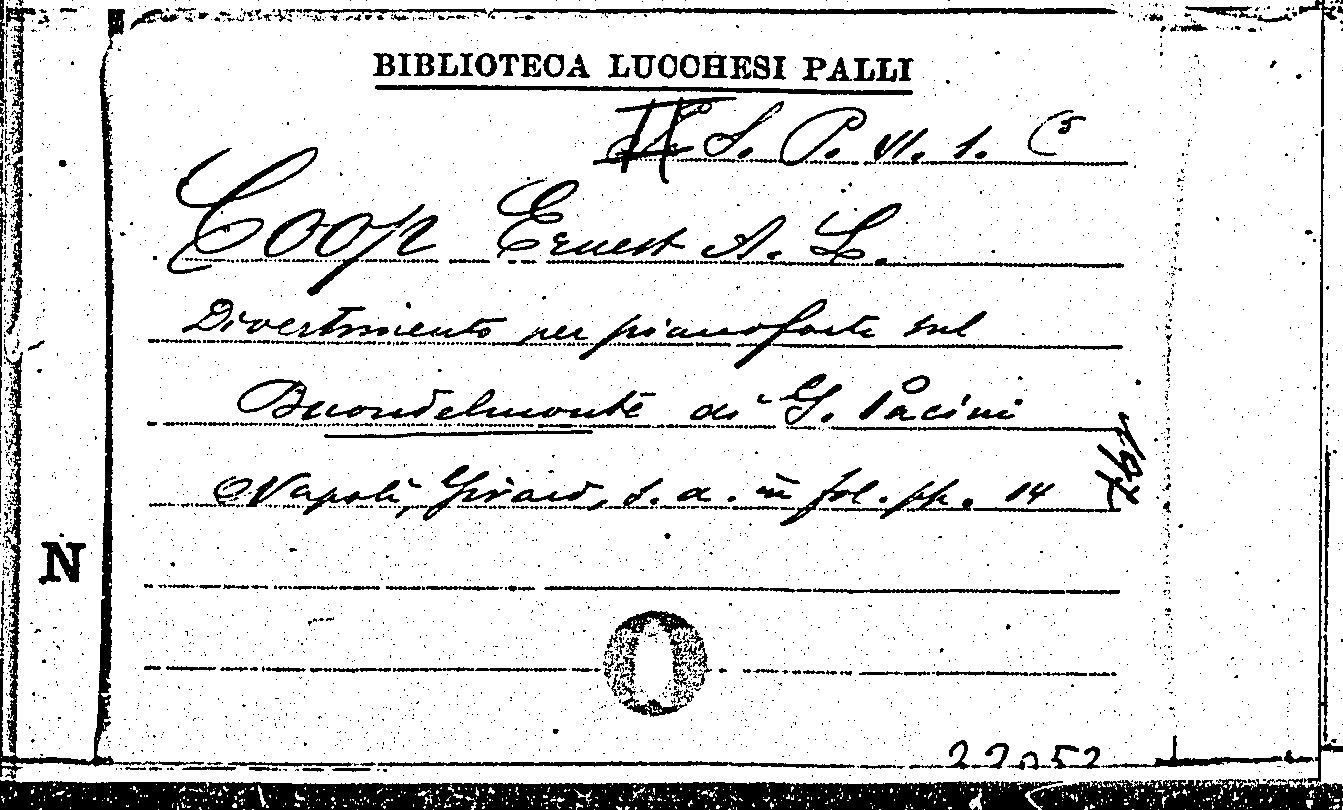 BIBLIOTECA LUCCHESI PALLI
S. P. VI. 1. C⁵
Coop Ernest A. L.
Divertimento per pianoforte sul
Buondelmonte di G. Pacini
Napoli, Girard, s. a. in fol. pp. 14
N
22052